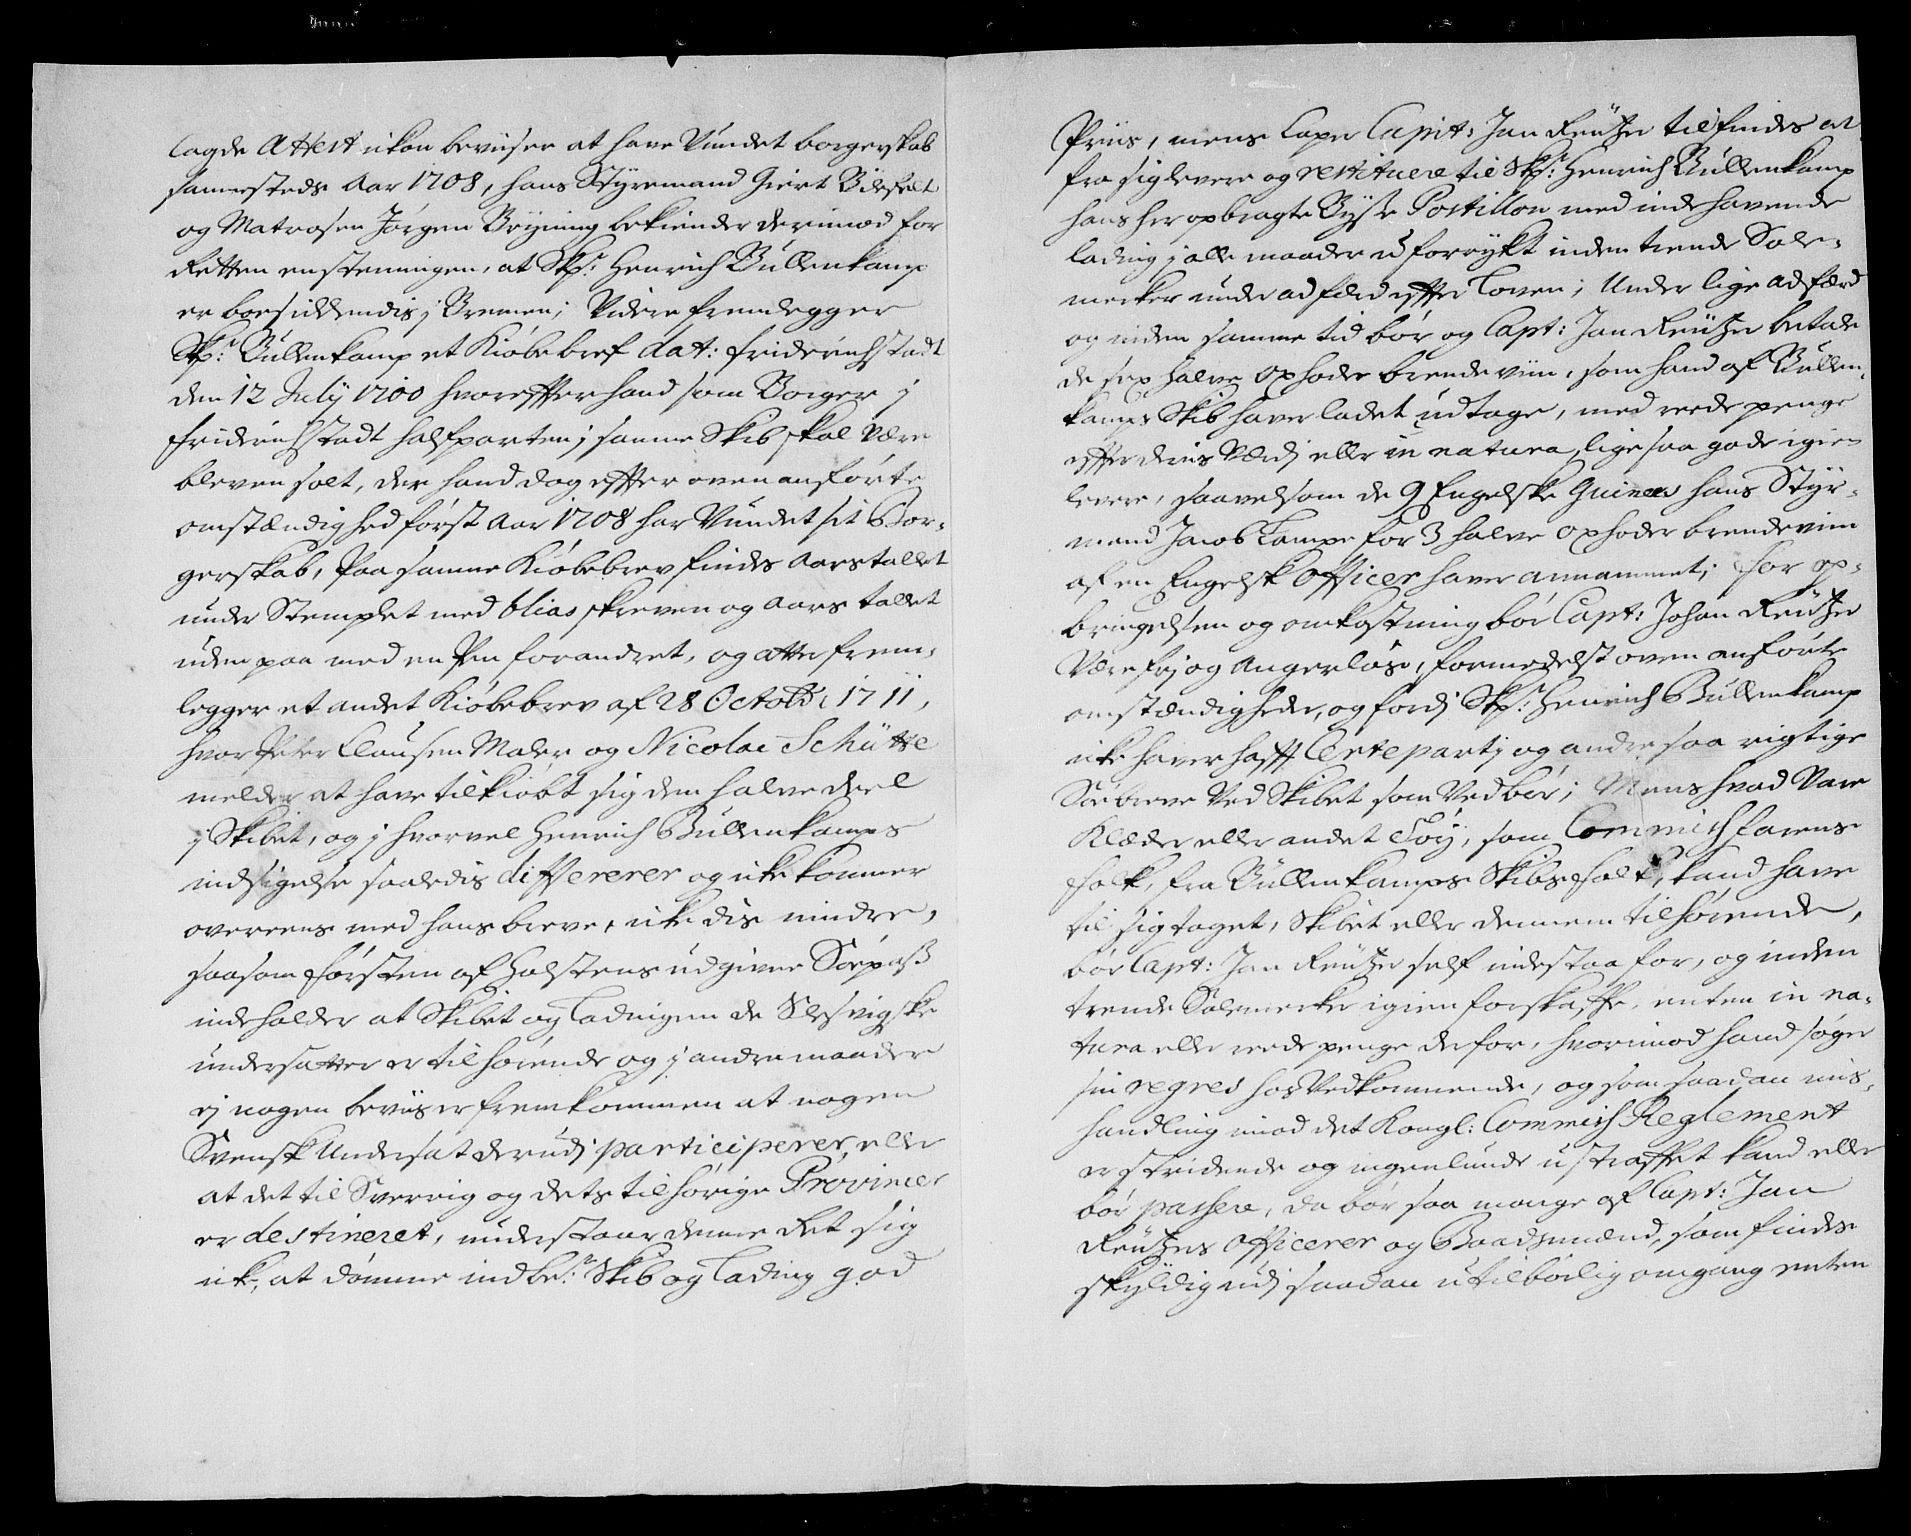 lagde Attest ikon beviiser at have Vundet borgerskab
sammesteds Aar 1708, hans Styremand Giert Bilefelt
og Matrosen Jørgen Bryning bekiender derimod for
Retten enstemmigen, at Skp.r Henrich Bullenkamp
er boesiddendis j Bremen; Videre fremlegger
Skp.r Bullenkamp et Kiøbebref dat: friderichstadt
den 12 July 1700 hvorefter hand som Borger j
friderichstadt halfparten j samme Skib skal være
bleven solt, der hand dog efter ovenanførte
omstændighed først Aar 1708 har Vundet sit Bor-
gerskab, Paa samme Kiøbebrev findes Aarstallet
under Stemplet med blias skreven og Aars tallet
uden paa med en Pen forandret, og atter frem-
legger et andet Kiøbebrev af 28 Octobr 1711,
hvor Peter Clausen Maler og Nicolai Schütte
melder at have tilkiøbt sig den halve deel
j Skibet, og j hvorvel Henrich Bullenkamps
indsigelse saaledis differerer og icke kommer
overeens med hans breve, icke dis mindre,
saasom førsten af Holstens udgivne Søepass
indeholder at Skibet og Ladningen de Slesvigske
undersatter er tilhørende og j andre maader
ej nogen beviis er fremkommen at nogen
Svensk Undersat derudj participerer, eller
at det til Sverrig og dets tilhørige Provincer
er destineret, understaar denne Ret sig
ick, at dømme indbe.te Skib og Lading god
Priis, mens Caper Capit: Jan Reutzer tilfindes at
fra sig levere og restituere til Skp.r Henrich Bullenkamp
hans her opbragte Byse Postillon med indehavende
lading j alle maader uforrykt inden trende Sole-
mercker under adfærd efter Loven; Under lige adfærd
og inden samme tid bør og Capt: Jan Reutzer betale
de sex halve Oxhoder brendeviin, som hand af Bullen-
kamps Skib haver ladet udtage, med reede penge
efter deris Værdj eller in natura, lige saa gode igien
levere, saavelsom de 9 Engelske Guinees hans Styr-
mand Jacob Lampe for 3 halve Oxhoder brendeviin
af en Engelsk Officer haver annammet; for op-
bringelsen og omkostning bør Capt: Johan Reutzer
Være frj og Angerløs, formedelst oven anførte
omstændigheder, og fordj Skp.r Henrich Bullenkamp
icke haver hafft Certepartj og andre saa rigtige
Søebreve Ved Skibet som Ved bør; Mens hvad Vare
Klæder eller andet Tøy, som Commissfarens
folk, fra Bullenkamps Skibsfolk, kand have
til sig taget, Skibet eller dennem tilhørende,
bør Capt: Jan Reutzer self indestaa for, og inden
trende Solemercke igien forskaffe, enten in na-
tura eller reede penge derfor, hvorimod hand søger
sin regres hos Vedkommende, og som saadan mis-
handling imod det Kongl: Commiss Reglement
er stridende og ingenlunde ustraffet kand eller
bør passere, da bør saa mange af Capt: Jan
Reutzers Officerer og Baadsmænd, som findes
skyldig udj saadan utilbørlig omgang enten